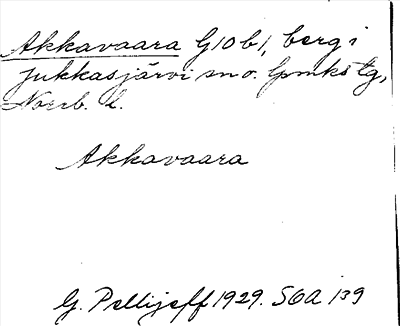 Akkavaara G10b1, berg i
Jukkasjärvi sn o. lpmks tg,
Norrb. l.
Akkavaara
G. Pellijeff 1929. SOA 139